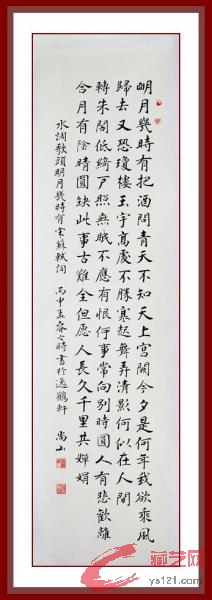 明月几時有把酒問青天不知天上宮闕今夕是何年我欲乘風
歸去又恐瓊樓玉宇高處不勝寒起舞弄清影何似在人間
轉朱閣低綺戶照無眠不應有恨何事長向別時圓人有悲歡離
合月有陰晴圓缺此事古難全但愿人長久千里共嬋娟
水調歌頭明月幾時有宋蘇軾詞 丙申孟春之時書於逸鶴軒 尚山
藏艺网
ys121.com